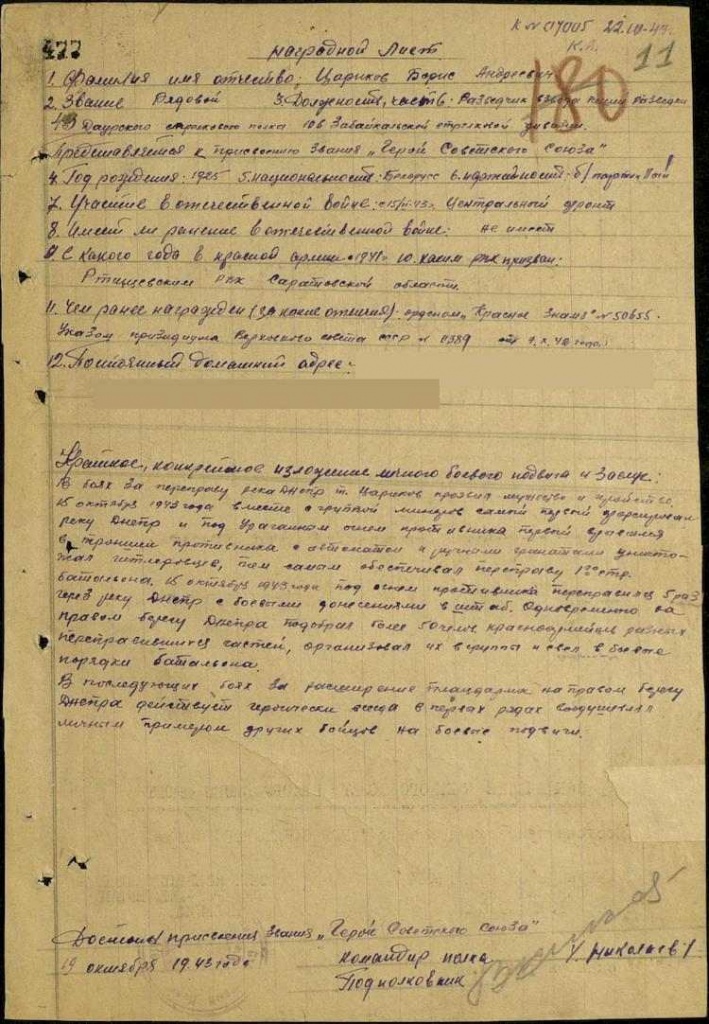 477
К № 017005 22.III-47.
К.Л.
180
11
Наградной Лист
1. Фамилия имя отчество: Цариков Борис Андреевич
2. Звание Рядовой 3. Должность, часть: Разведчик взвода пешей разведки
43 Даурского стрелкового полка 106 Забайкальской стрелковой дивизии.
Представляется к присвоению звания „Герой Советского Союза"
4. Год рождения: 1925 5. Национальность: Белорус 6. партийность: б/партийный
7. Участие в отечественной войне: Центральный фронт
8. Имеет ли ранение в отечественной войне: не имеет
9. С какого года в красной армии „1941" 10. Каким РВК призван:
Ртищевским РВК Саратовской области
11. Чем ранее награжден (за какие отличия): орденом „Красное Знамя" № 50655.
Указом президиума Верховного совета СССР
12. Постоянный домашний адрес:
Краткое, конкретное изложение личного боевого подвига и заслуг:
В боях за переправу реки Днепр т. Цариков проявил мужество и геройство
15 октября 1943 года вместе с группой минеров самый первый форсировал
реку Днепр и под ураганным огнем противника первый ворвался
в траншеи противника с автоматом и ручными гранатами уничто-
жал гитлеровцев, тем самым обеспечивал переправу 1го стр.
батальона. 15 октября 1943 года под огнем противника переправился 5 раз
через реку Днепр с боевыми донесениями в штаб. Одновременно на
правом берегу Днепра подобрал более 50 челов. красноармейцев разных
переправившихся частей, организовал их в группы и свел в боевые
порядки батальона.
В последующих боях за расширение плацдарма на правом берегу
Днепра действует героически всегда в первых рядах воодушевляя
личным примером других бойцов на боевые подвиги.
Достоин присвоения звания „Герой Советского Союза"
19 октября 1943 года
Командир полка
Подполковник
/Николаев/